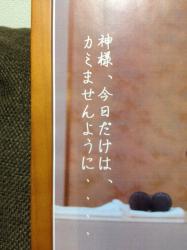 神様、今日だけは、
カミませんように・・・・